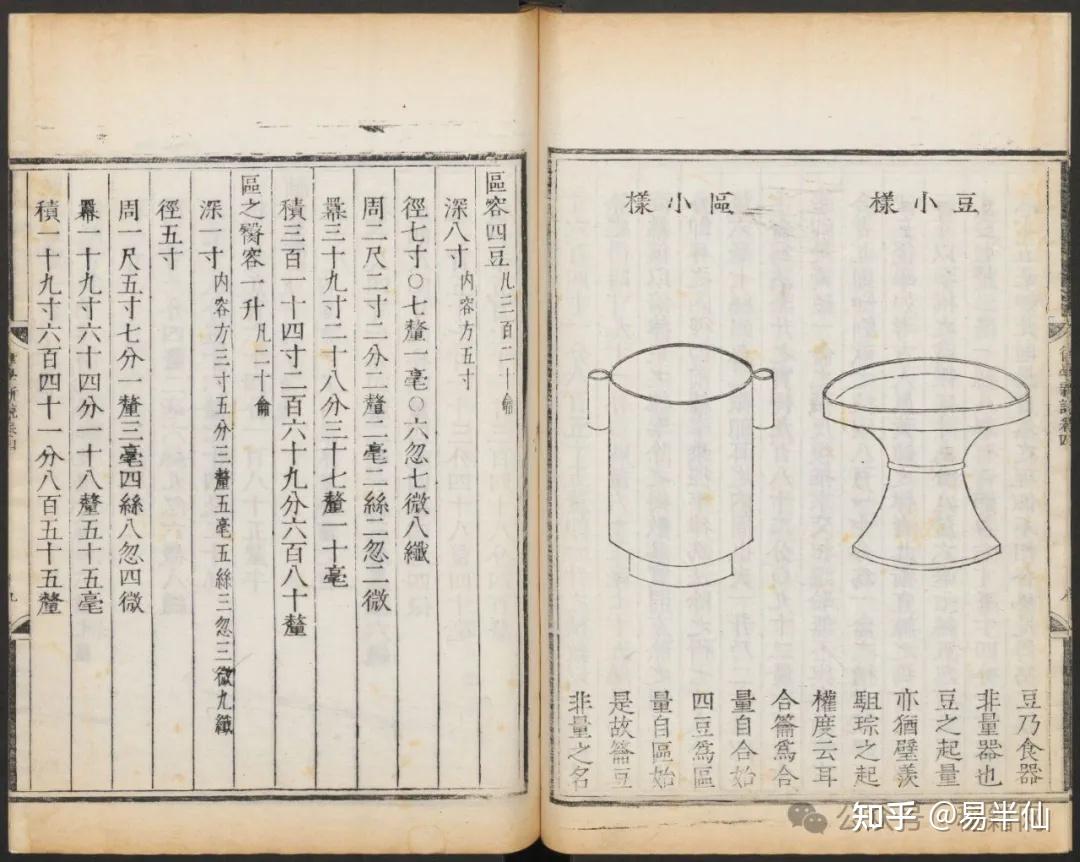 豆小樣
區小樣
豆乃食器
非量器也
豆之起量
亦猶璧羨
駔琮之起
權度云耳
合籥爲合
量自合始
四豆爲區
量自區始
是故籥豆
非量之名
律學新說卷四
區容四豆凡三百二十龠
深八寸內容方五寸
徑七寸〇七釐一毫〇六忽七微八纖
周二尺二寸二分二釐二毫二絲二忽二微
羃三十九寸二十八分三十七釐一十毫
積三百一十四寸二百六十九分六百八十釐
區之臋容一升凡二十龠
深一寸內容方三寸五分三釐五毫五絲三忽三微九纖
徑五寸
周一尺五寸七分一釐三毫四絲八忽四微
羃一十九寸六十四分一十八釐五十五毫
積一十九寸六百四十一分八百五十五釐
九
知乎 @易半仙